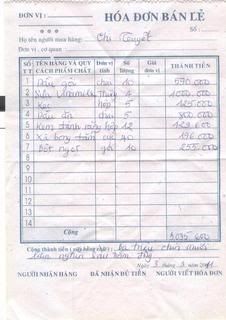 ĐƠN VỊ : HÓA ĐƠN BÁN LẺ
Số :
Họ tên người mua hàng: Chị Tuyết
Đơn vị , cơ quan
SỐ TT TÊN HÀNG VÀ QUY CÁCH PHẨM CHẤT Đơn vị tính Số lượng Giá đơn vị THÀNH TIỀN
1 Dầu gội chai 10 590.000
2 Sữa Vinamilk Thùng 4 1000.000
3 hộp 5 125.000
4 Dầu ăn chai 5 800.000
5 Kem đánh răng hộp 12 129.600
6 Xà bông tắm cục 40 196.000
7 Bột ngọt gói 10 255.000
8
9
10
11
12
13
14
Cộng 3.095.650
Cộng thành tiền (viết bằng chữ) : ba triệu chín mươi
lăm nghìn sáu trăm
Ngày 3 tháng 3 năm 2011
NGƯỜI NHẬN HÀNG ĐÃ NHẬN ĐỦ TIỀN NGƯỜI VIẾT HÓA ĐƠN